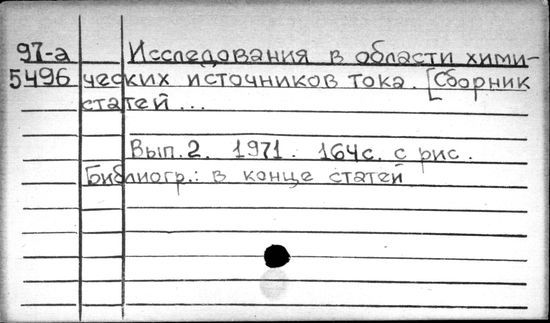 97-а Исследования в области хими-
5496 ческих источников тока. [Сборник
статей ...
Вып. 2. 1971. 164с. с рис.
Библиогр.: в конце статей